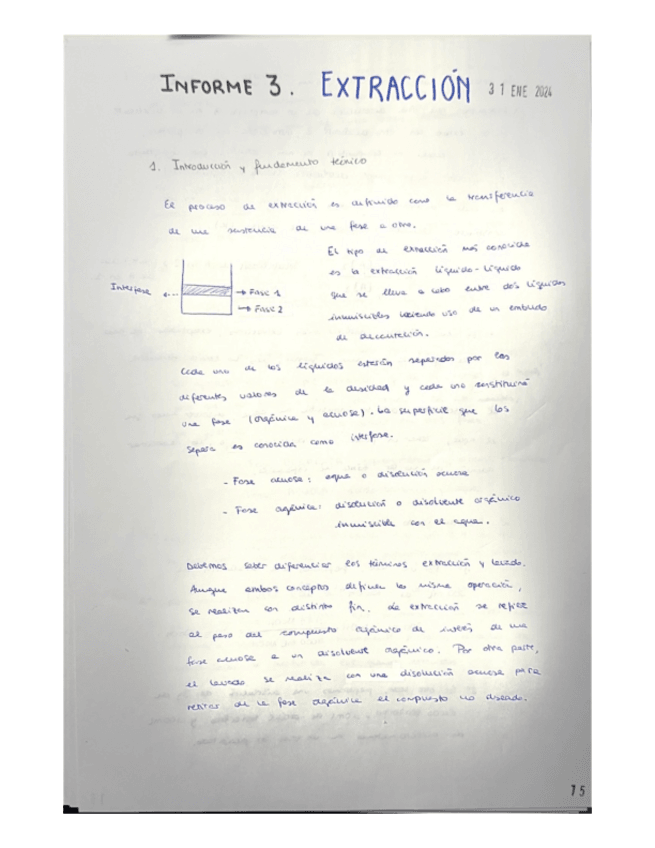 INFORME 3. EXTRACCIÓN 31 ENE 2024
1. Introducción y fundamento teórico
El proceso de extracción es definido como la transferencia
de una sustancia de una fase a otra.
El tipo de extracción más conocida
es la extracción líquido-líquido
que se lleva a cabo entre dos líquidos
inmiscibles haciendo uso de un embudo
de decantación.
Interfase
Fase 1
Fase 2
Cada uno de los líquidos estarán separados por los
diferentes valores de la densidad y cada uno constituirá
una fase (orgánica y acuosa). La superficie que los
separa es conocida como interfase.
- Fase acuosa: agua o disolución acuosa
- Fase orgánica: disolución o disolvente orgánico
inmiscible con el agua.
Debemos saber diferenciar los términos extracción y lavado.
Aunque ambos conceptos definen la misma operación,
se realizan con distinto fin. La extracción se refiere
al paso del compuesto orgánico de interés de una
fase acuosa a un disolvente orgánico. Por otra parte,
el lavado se realiza con una disolución acuosa para
retirar de la fase orgánica el compuesto no deseado.
15